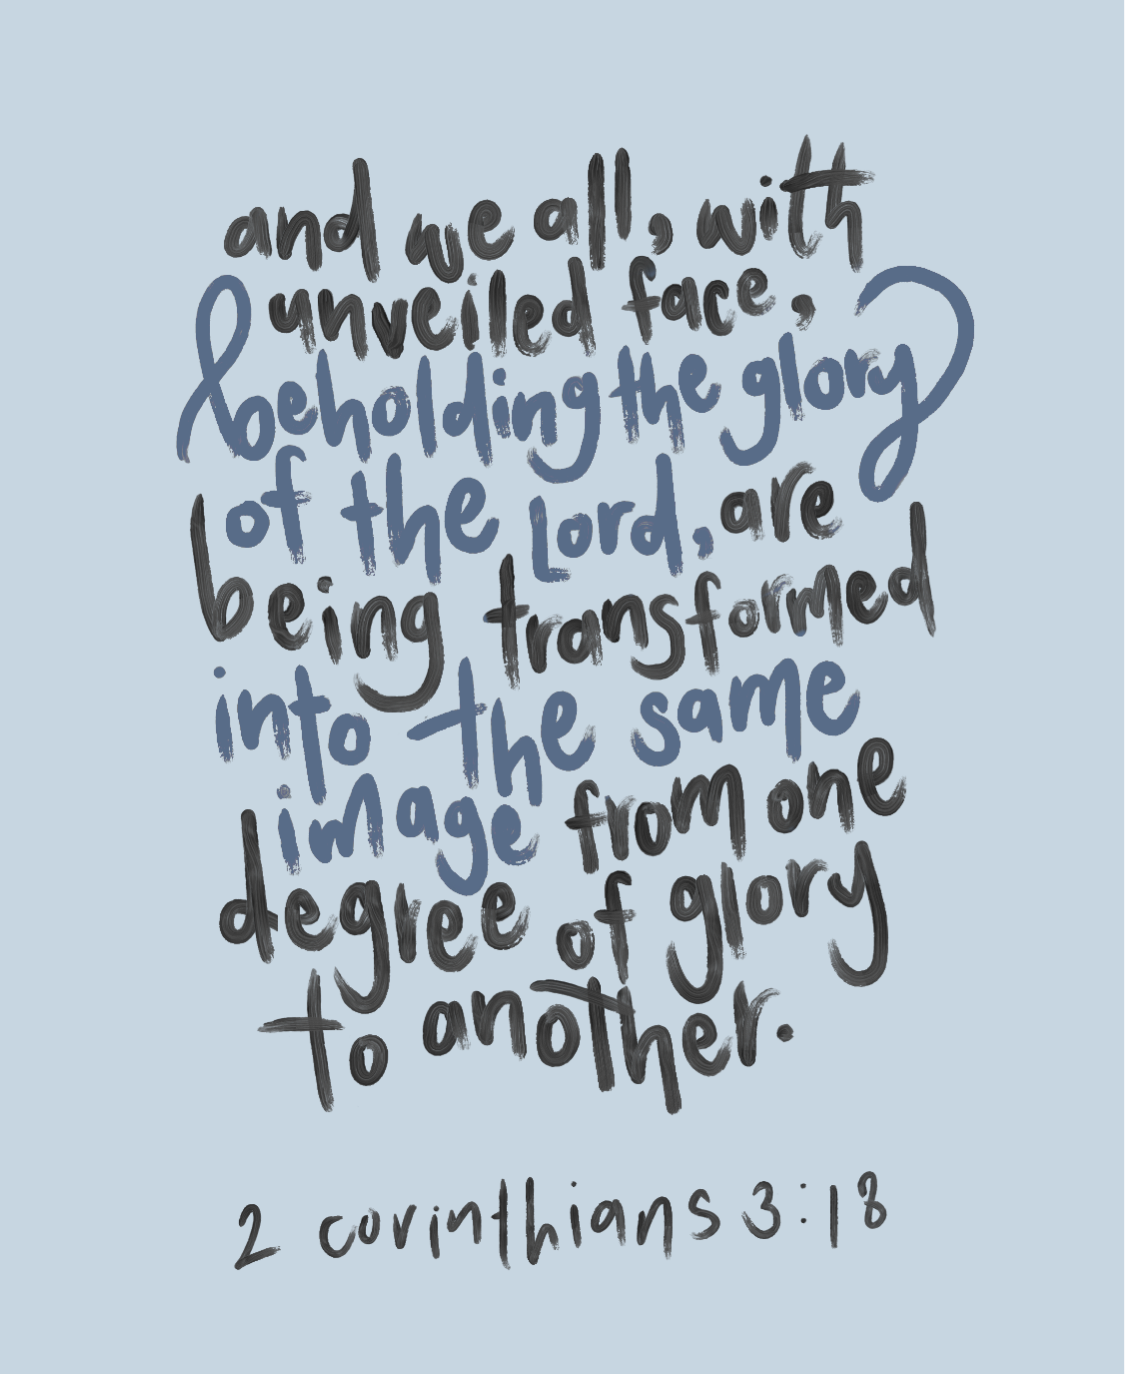 and we all, with
unveiled face,
beholding the glory
of the Lord, are
being transformed
into the same
image from one
degree of glory
to another.
2 corinthians 3:18